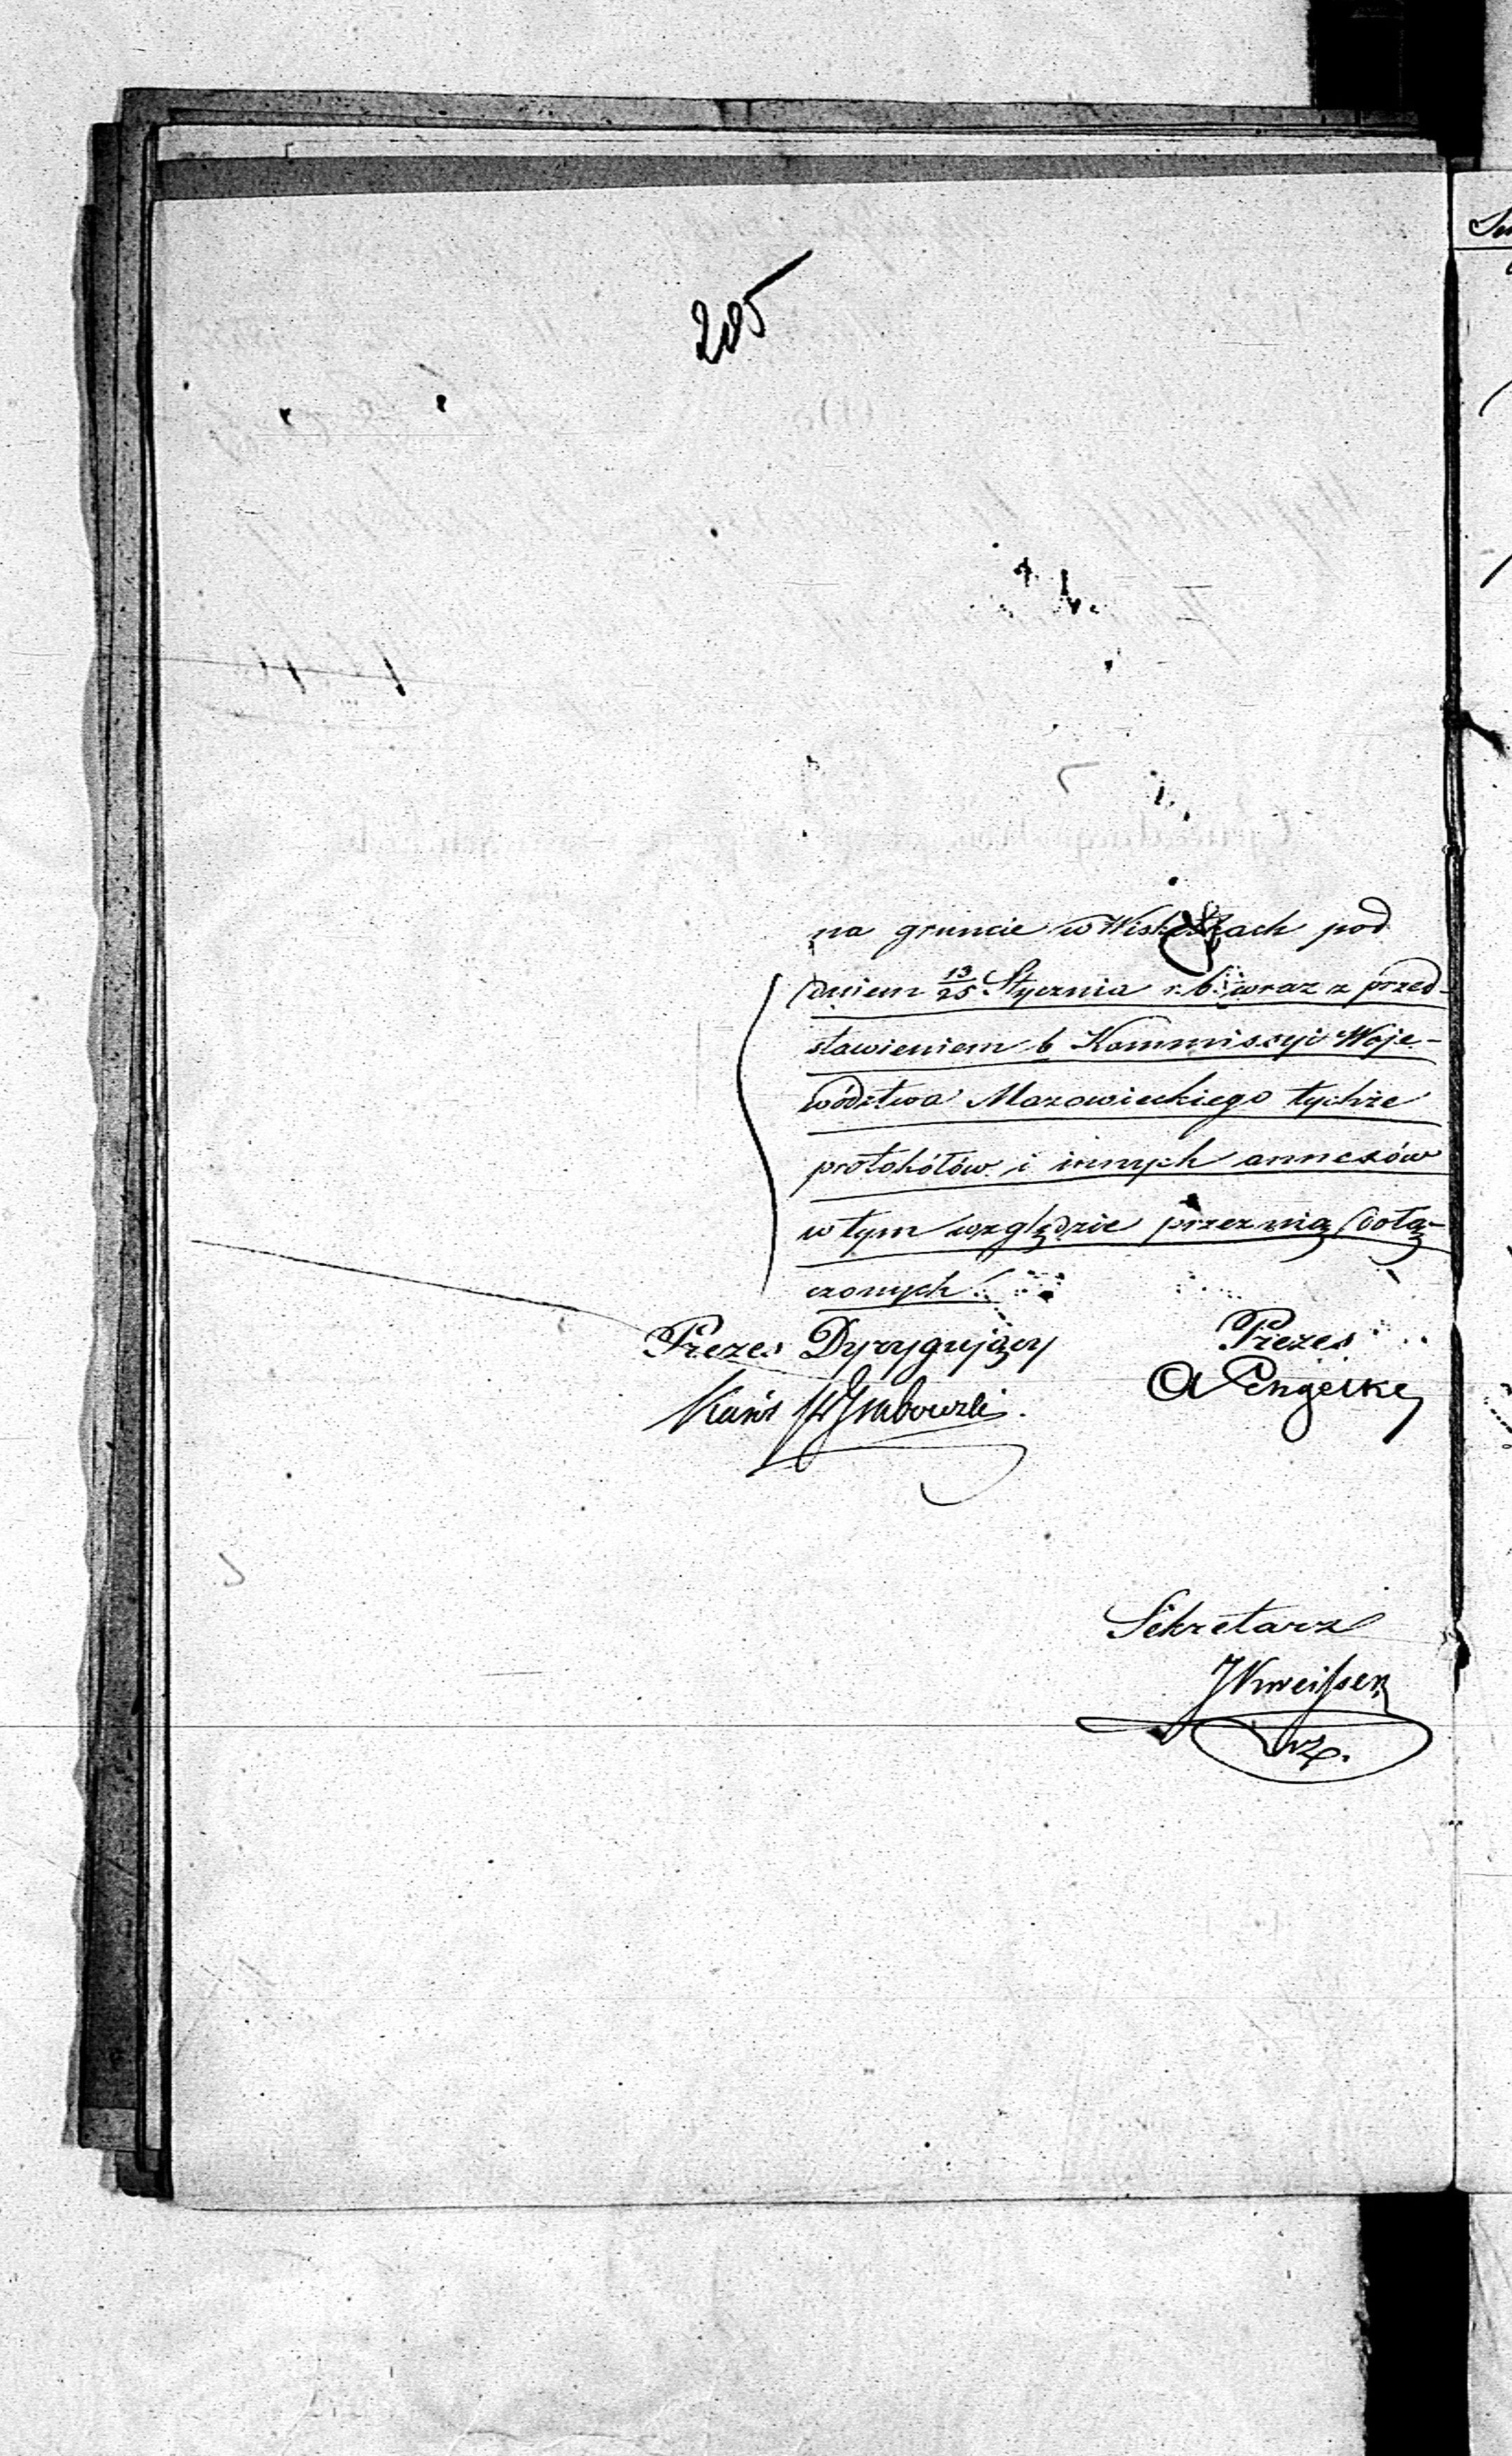 205
na gruncie w Wiskitkach pod
dniem 13/25 Stycznia r. b. wraz z przed-
stawieniem b Kommissyi Woje-
wództwa Mazowieckiego tychże
protokółów i innych annexów
w tym względzie przez nią dołą-
czonych.
Prezes Dyrygujący Prezes
Engelke
Sekretarz